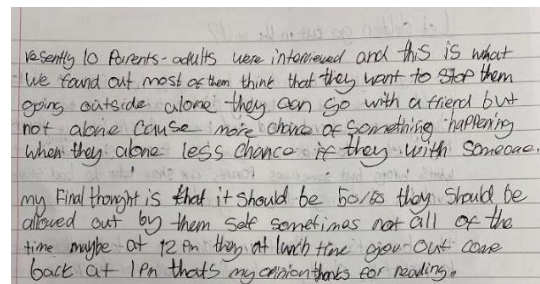 resently 10 Parents-adults were interviewed and this is what
we found out most of them think that they want to stop them
going outside alone they can go with a friend but
not alone cause more chance of something happening
when they alone less chance if they with someone.
my Final thought is that it should be 50/50 they should be
allowed out by them self sometimes not all of the
time maybe at 12 Pm they at lunch time out come
back at 1 Pm thats my opinion thanks for reading.